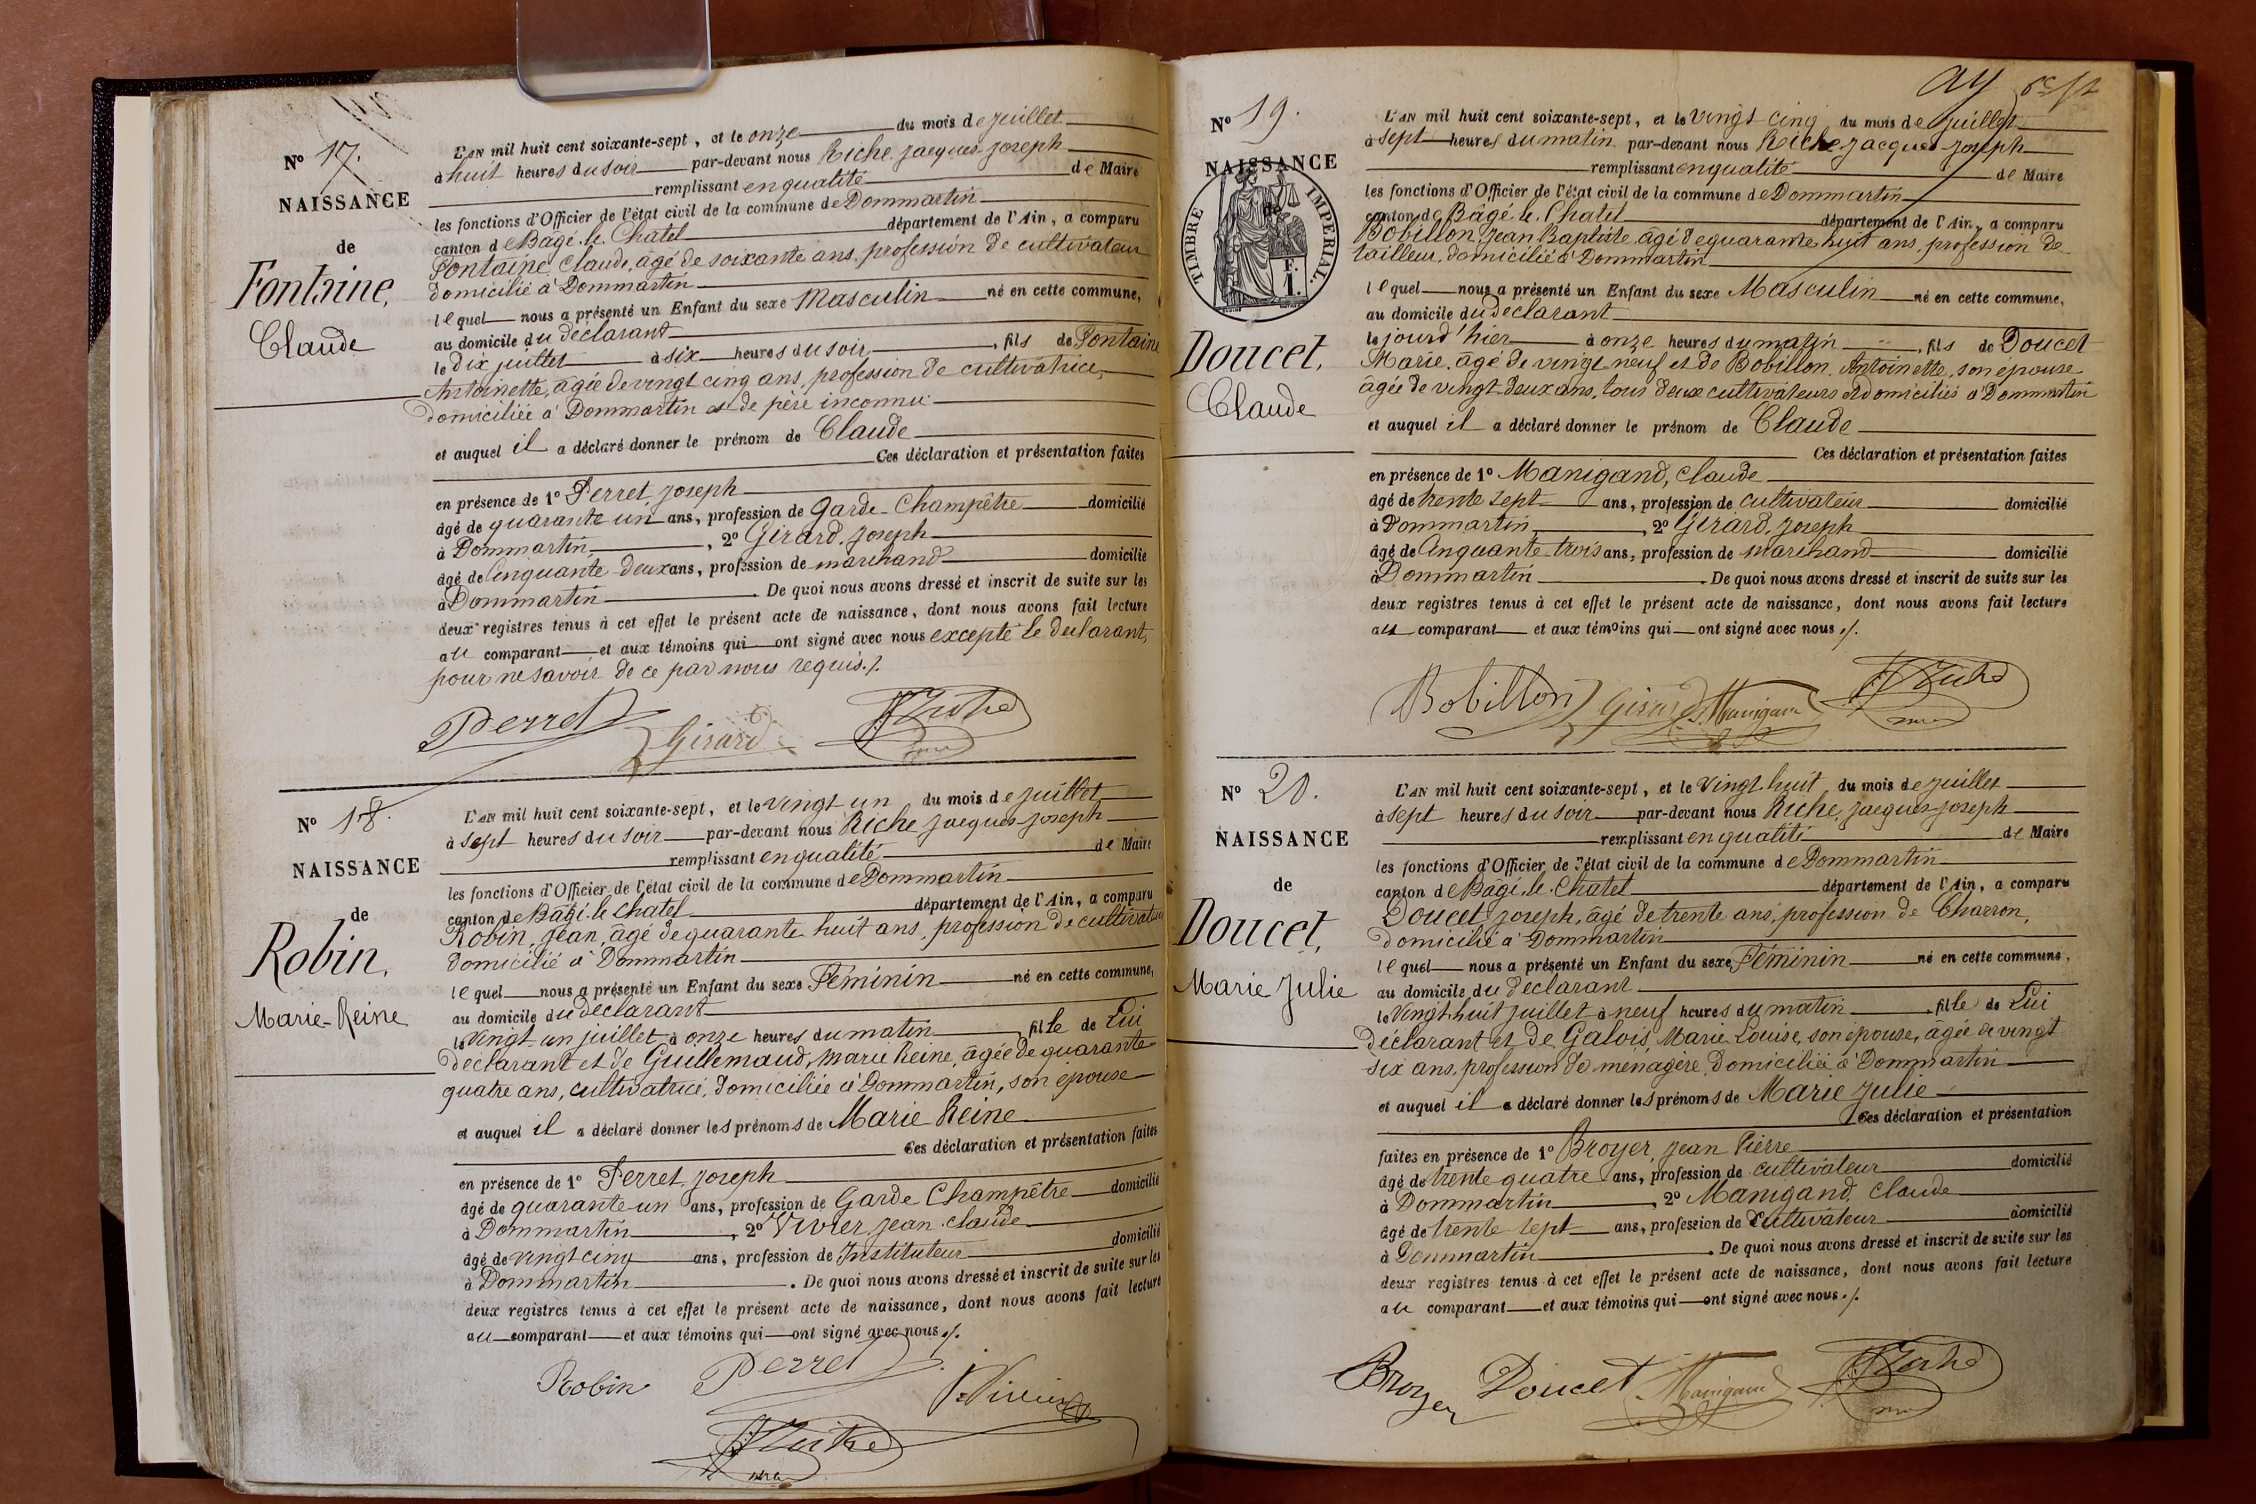 N° 17.
NAISSANCE
de
Fontaine,
Claude
L'AN mil huit cent soixante-sept, et le onze du mois de juillet
à huit heures du soir par-devant nous Riche Jacques Joseph
remplissant en qualité de Maire
les fonctions d'Officier de l'état civil de la commune de Dommartin
canton de Bâgé-le-Chatel département de l'Ain, a comparu
Fontaine, Claude, âgé de soixante ans, profession de cultivateur
domicilié à Dommartin
lequel nous a présenté un Enfant du sexe Masculin né en cette commune,
au domicile du déclarant
le dix juillet à six heures du soir, fils de Fontaine
Antoinette, agée de vingt cinq ans, profession de cultivatrice,
domiciliée à Dommartin et de père inconnu
et auquel il a déclaré donner le prénom de Claude
Ces déclaration et présentation faites
en présence de 1° Perret, Joseph
âgé de quarante un ans, profession de Garde-Champêtre domicilié
à Dommartin, 2° Girard, Joseph
âgé de Cinquante deux ans, profession de marchand domicilié
à Dommartin. De quoi nous avons dressé et inscrit de suite sur les
deux registres tenus à cet effet le présent acte de naissance, dont nous avons fait lecture
au comparant et aux témoins qui ont signé avec nous excepté le declarant,
pour ne savoir de ce par nous requis ./.
Perret Girard J Riche
N° 18.
NAISSANCE
de
Robin,
Marie-Reine
L'AN mil huit cent soixante-sept, et le vingt un du mois de juillet
à sept heures du soir par-devant nous Riche Jacques Joseph
remplissant en qualité de Maire
les fonctions d'Officier de l'état civil de la commune de Dommartin
canton de Bâgé-le-chatel département de l'Ain, a comparu
Robin, Jean, âgé de quarante huit ans, profession de cultivateur
domicilié à Dommartin
lequel nous a présenté un Enfant du sexe Féminin né en cette commune,
au domicile du déclarant
le vingt-un juillet à onze heures du matin fille de Lui
déclarant et de Guillemaud, Marie Reine, âgée de quarante
quatre ans, cultivatrice, domiciliée à Dommartin, son epouse
et auquel il a déclaré donner les prénoms de Marie Reine
Ces déclaration et présentation faites
en présence de 1° Perret, Joseph
âgé de quarante un ans, profession de Garde Champêtre domicilié
à Dommartin, 2° Vivier, Jean-Claude
âgé de vingt cinq ans, profession de Instituteur domicilié
à Dommartin. De quoi nous avons dressé et inscrit de suite sur les
deux registres tenus à cet effet le présent acte de naissance, dont nous avons fait lecture
au comparant et aux témoins qui ont signé avec nous ./.
Robin Perret Vivier
J Riche
N° 19.
NAISSANCE
TIMBRE IMPERIAL.
F.
1.
Doucet,
Claude
L'AN mil huit cent soixante-sept, et le vingt-cinq du mois de juillet
à sept heures du matin par-devant nous Riche Jacques Joseph
remplissant en qualité de Maire
les fonctions d'Officier de l'état civil de la commune de Dommartin
canton de Bâgé-le-Chatel département de l'Ain, a comparu
Bobillon, Jean Baptiste âgé de quarante huit ans, profession de
tailleur, domicilié à Dommartin
lequel nous a présenté un Enfant du sexe Masculin né en cette commune,
au domicile du declarant
le jourd'hier à onze heures du matin, fils de Doucet
Marie, âgé de vingt neuf et de Bobillon, Antoinette, son epouse
agée de vingt-deux ans, tous deux cultivateurs et domiciliés à Dommartin
et auquel il a déclaré donner le prénom de Claude
Ces déclaration et présentation faites
en présence de 1° Manigand, Claude
âgé de trente sept ans, profession de cultivateur domicilié
à Dommartin, 2° Girard, Joseph
âgé de Cinquante-trois ans, profession de marchand domicilié
à Dommartin. De quoi nous avons dressé et inscrit de suite sur les
deux registres tenus à cet effet le présent acte de naissance, dont nous avons fait lecture
au comparant et aux témoins qui ont signé avec nous ./.
Bobillon Girard Manigand J Riche
N° 20.
NAISSANCE
de
Doucet,
Marie Julie
L'AN mil huit cent soixante-sept, et le Vingt huit du mois de juillet
à sept heures du soir par-devant nous Riche, Jacques Joseph
remplissant en qualité de Maire
les fonctions d'Officier de l'état civil de la commune de Dommartin
canton de Bâgé-le-Chatel département de l'Ain, a comparu
Doucet Joseph, âgé de trente ans, profession de Charron,
domicilié à Dommartin
lequel nous a présenté un Enfant du sexe Féminin né en cette commune,
au domicile du déclarant
le Vingt-huit juillet à neuf heures du matin, fille de Lui
déclarant et de Galois, Marie Louise, son épouse, âgée de vingt
six ans, profession de ménagère, domiciliée à Dommartin
et auquel il a déclaré donner les prénoms de Marie Julie
Ces déclaration et présentation
faites en présence de 1° Broyer, Jean Pierre
âgé de trente quatre ans, profession de cultivateur domicilié
à Dommartin, 2° Manigand, Claude
âgé de trente sept ans, profession de Cultivateur domicilié
à Dommartin. De quoi nous avons dressé et inscrit de suite sur les
deux registres tenus à cet effet le présent acte de naissance, dont nous avons fait lecture
au comparant et aux témoins qui ont signé avec nous ./.
Broyer Doucet Manigand J Riche